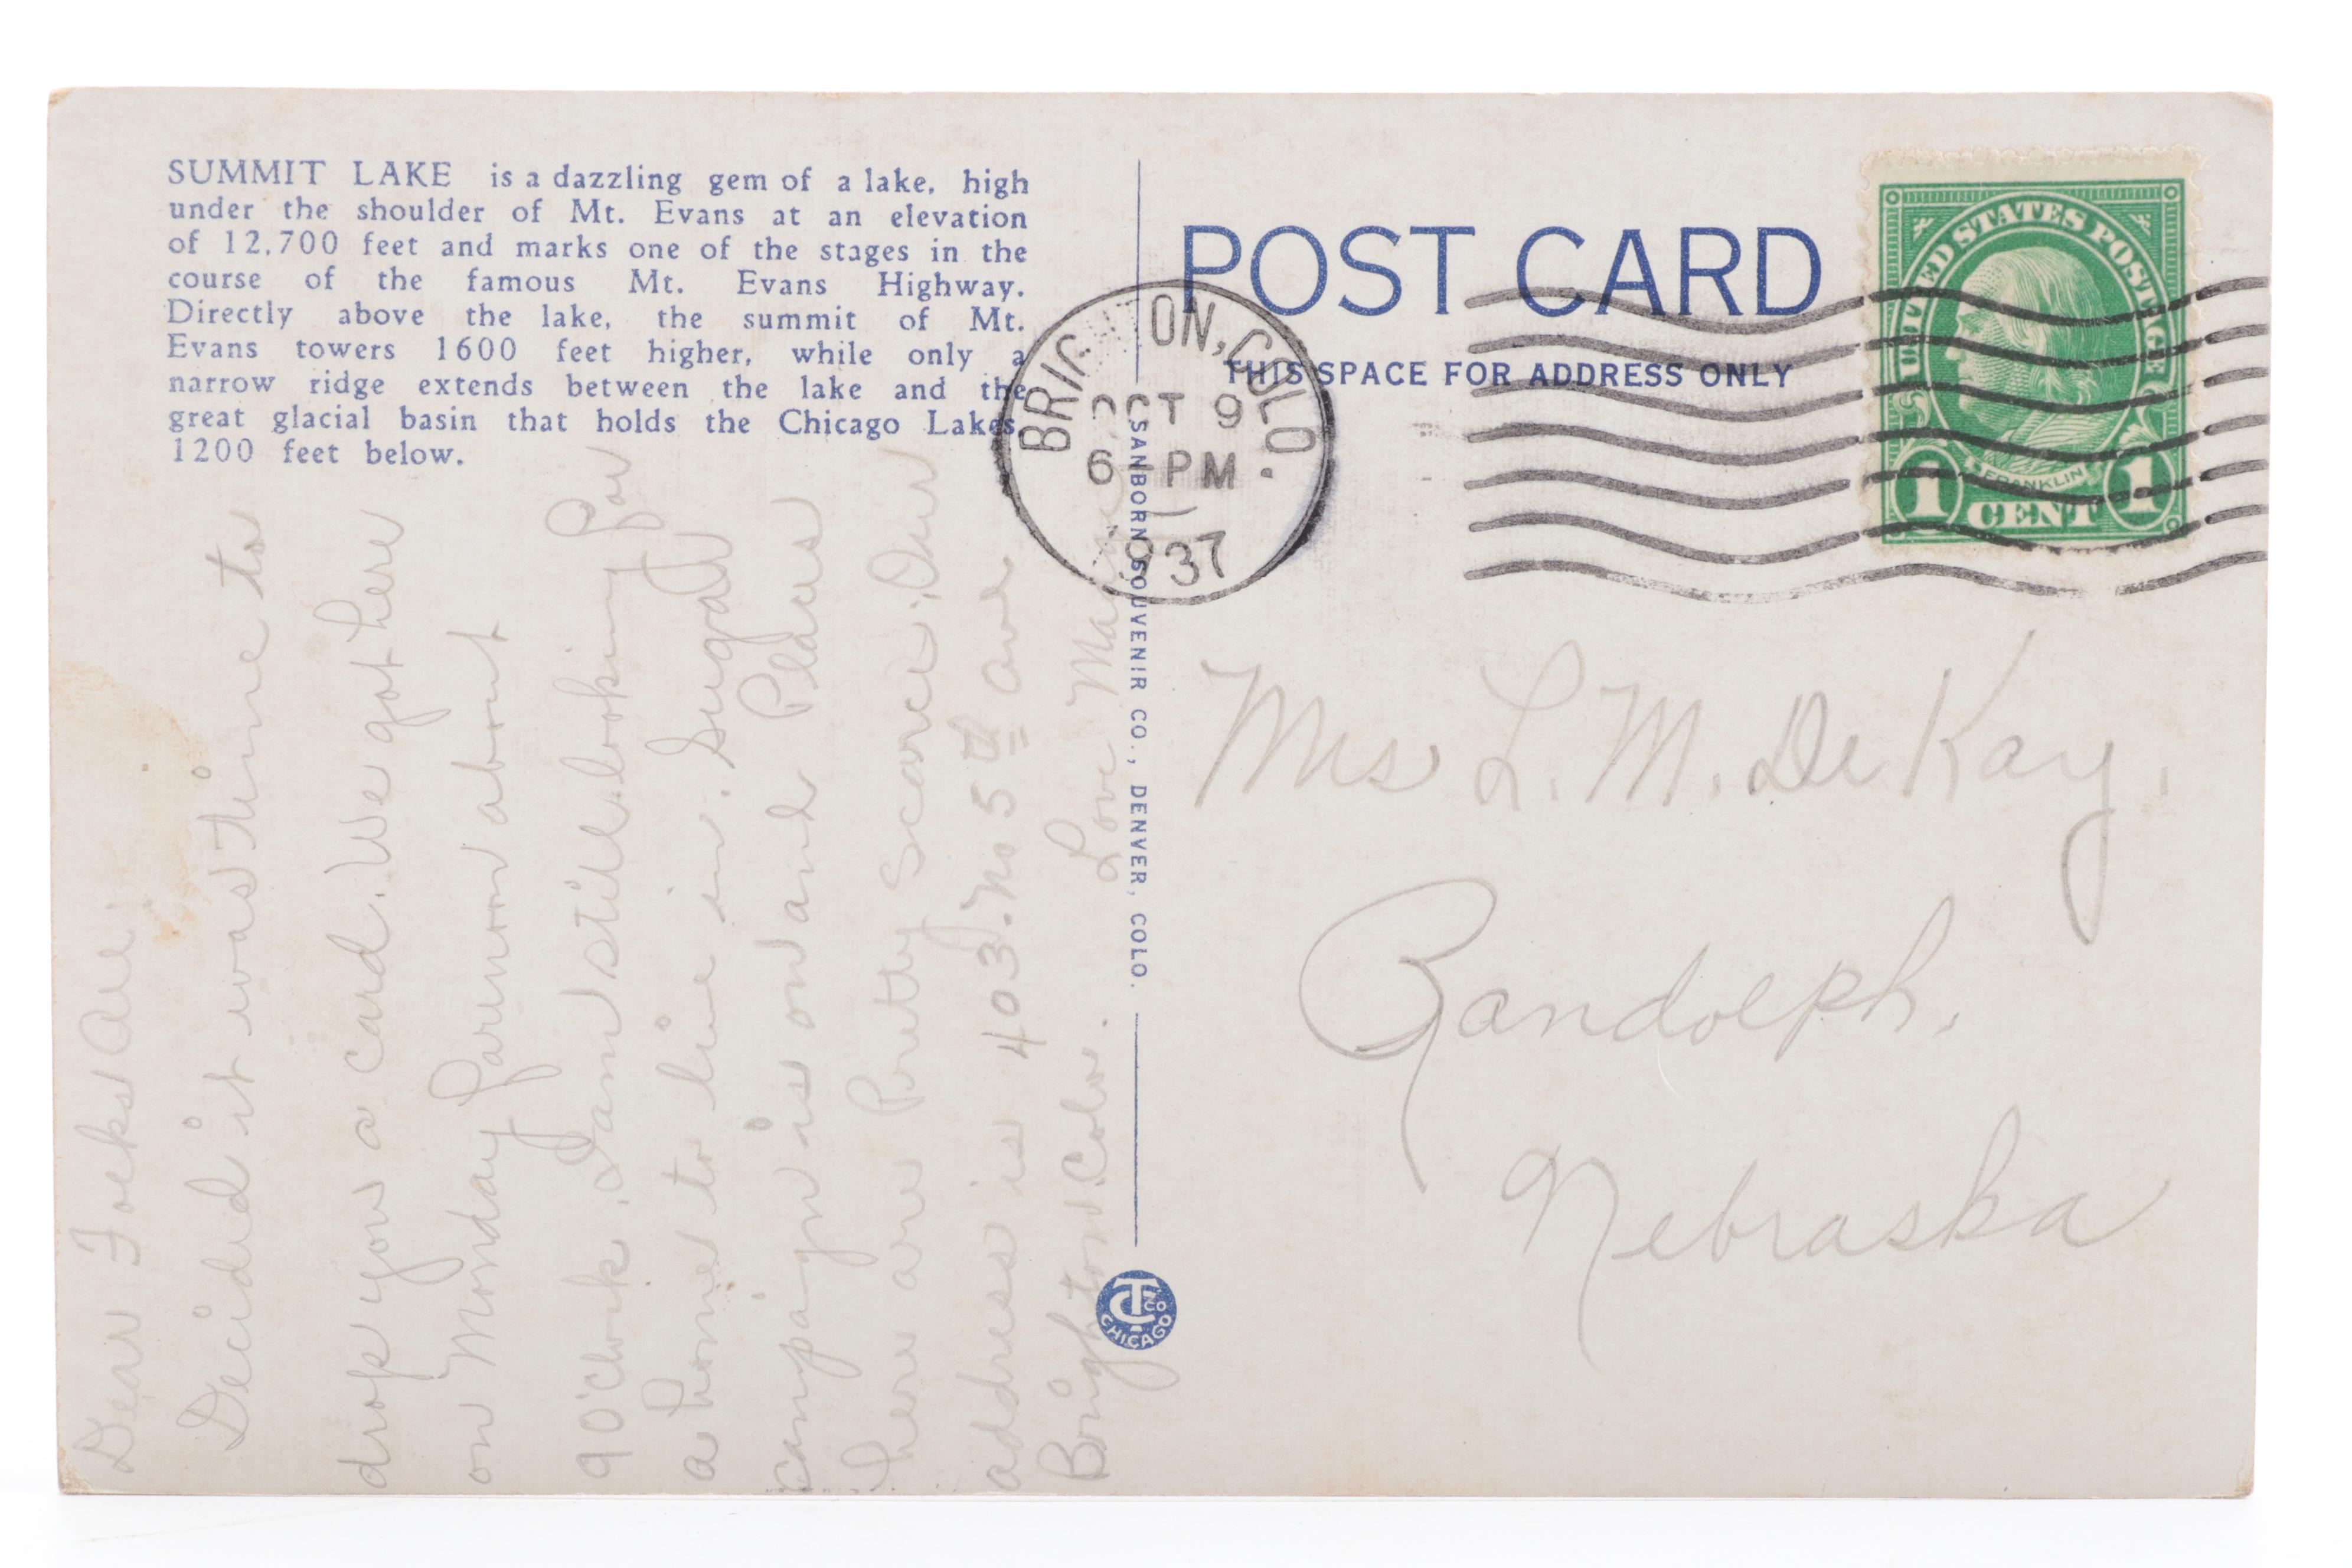 SUMMIT LAKE is a dazzling gem of a lake, high
under the shoulder of Mt. Evans at an elevation
of 12,700 feet and marks one of the stages in the
course of the famous Mt. Evans Highway.
Directly above the lake, the summit of Mt.
Evans towers 1600 feet higher, while only a
narrow ridge extends between the lake and the
great glacial basin that holds the Chicago Lakes
1200 feet below.
Dear Folks All.
Decided it was time to
drop you a card. We got here
on Monday forenoon about
9 O'clock. I am still looking for
a home to live in. Sugar
campaign is on and Places
here are Pretty Scarce. Our
address is 403. No 5th ave
Brighton. Colo. Love
SANBORN SOUVENIR CO., DENVER, COLO.
CT CO
CHICAGO
POST CARD
THIS SPACE FOR ADDRESS ONLY
BRIGHTON, COLO.
OCT 9
6 PM
1937
UNITED STATES POSTAGE
FRANKLIN
1 CENT 1
Mrs L. M. De Kay.
Randolph.
Nebraska